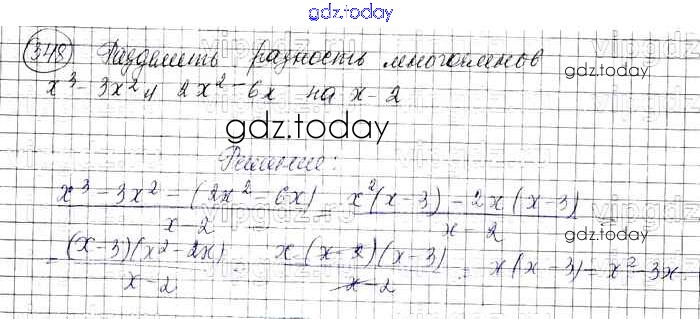 gdz.today
348 Разделить разность многочленов
x³ - 3x² и 2x² - 6x на x - 2
gdz.today
gdz.today
Решение:
x³ - 3x² - (2x² - 6x) / x - 2 = x²(x - 3) - 2x(x - 3) / x - 2
gdz.today
= (x - 3)(x² - 2x) / x - 2 = x(x - 2)(x - 3) / x - 2 = x(x - 3) = x² - 3x.